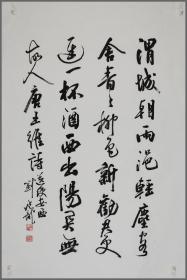 渭城朝雨浥輕塵客
舍青々柳色新勸君更
進一杯酒西出陽關無
故人 唐王維詩